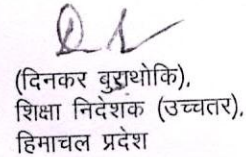 (दिनकर बुराथोकि),
शिक्षा निदेशक (उच्चतर),
हिमाचल प्रदेश